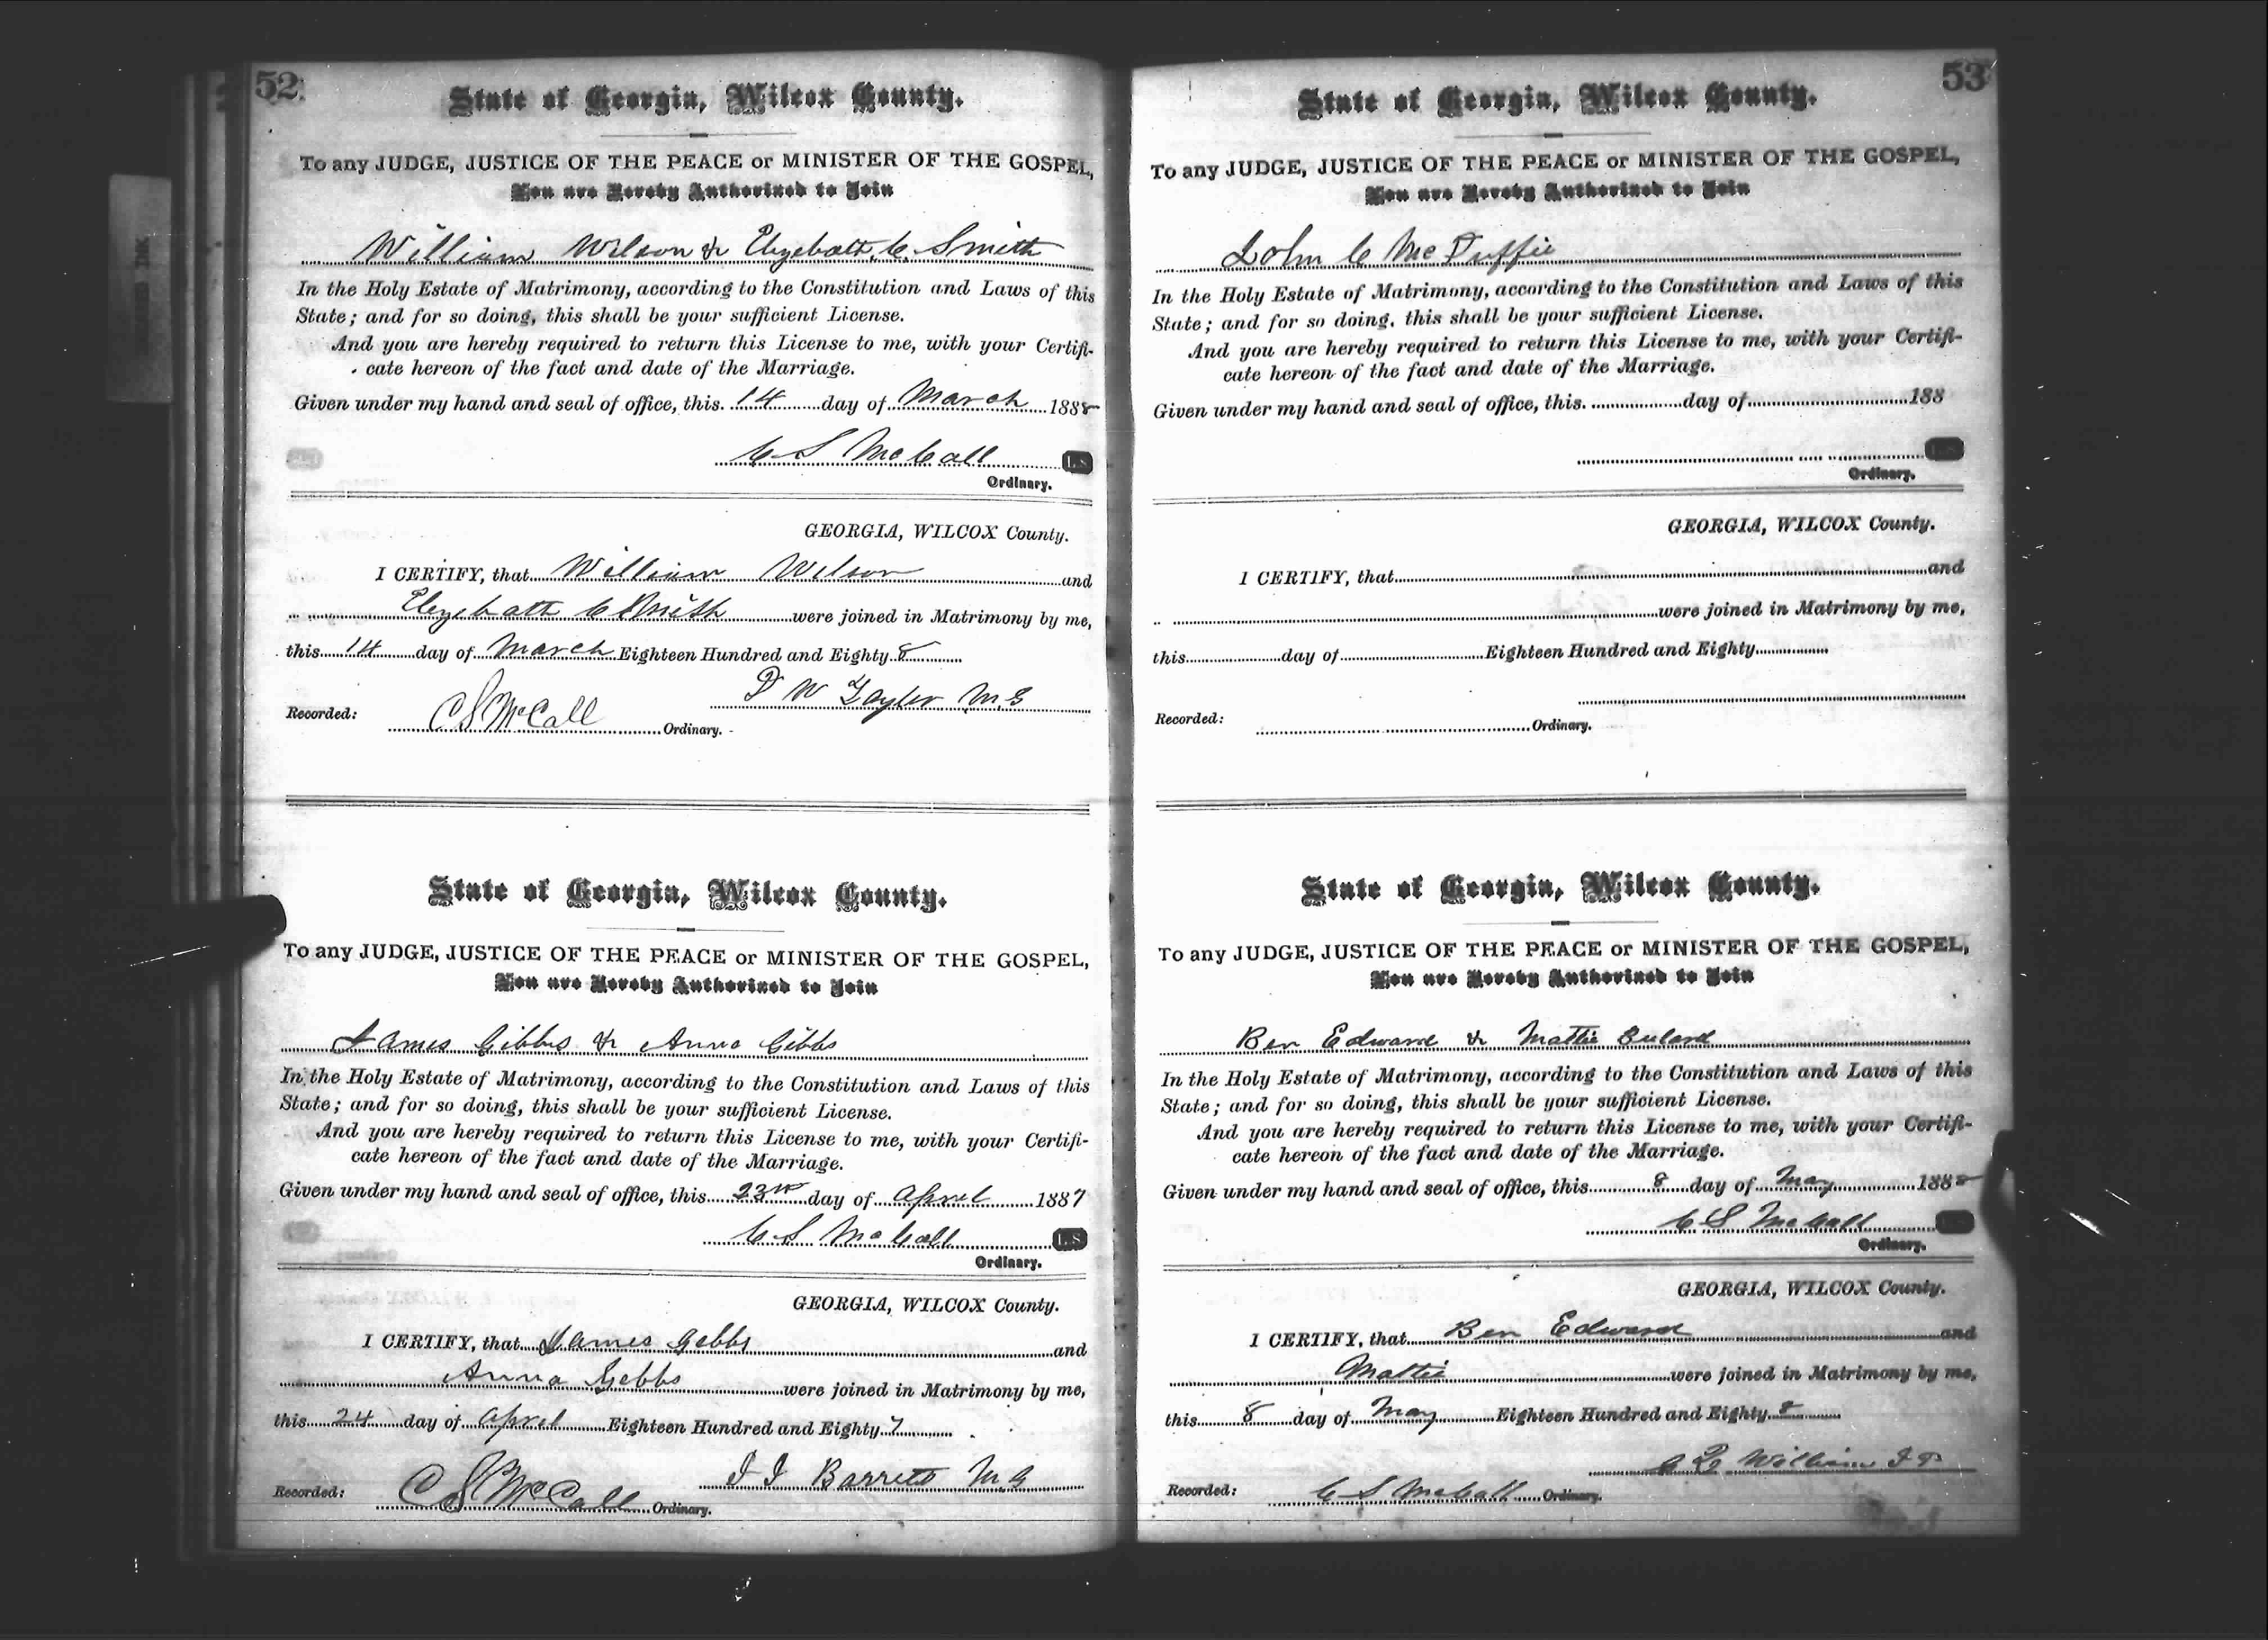 52
State of Georgia, Wilcox County.
To any JUDGE, JUSTICE OF THE PEACE or MINISTER OF THE GOSPEL,
You are Hereby Authorized to Join
William Wilson & Elyzebath C. Smith
In the Holy Estate of Matrimony, according to the Constitution and Laws of this
State; and for so doing, this shall be your sufficient License.
And you are hereby required to return this License to me, with your Certifi-
cate hereon of the fact and date of the Marriage.
Given under my hand and seal of office, this 14 day of March 1888
C S McCall L.S
Ordinary.
GEORGIA, WILCOX County.
I CERTIFY, that William Wilson and
Elyzebath C Smith were joined in Matrimony by me,
this 14 day of March Eighteen Hundred and Eighty 8
D W Taylor M.G
Recorded: C S McCall Ordinary.
State of Georgia, Wilcox County.
To any JUDGE, JUSTICE OF THE PEACE or MINISTER OF THE GOSPEL,
You are Hereby Authorized to Join
James Gibbs & Anna Gibbs
In the Holy Estate of Matrimony, according to the Constitution and Laws of this
State; and for so doing, this shall be your sufficient License.
And you are hereby required to return this License to me, with your Certifi-
cate hereon of the fact and date of the Marriage.
Given under my hand and seal of office, this 23rd day of April 1887
C S McCall L.S
Ordinary.
GEORGIA, WILCOX County.
I CERTIFY, that James Gebbs and
Anna Gebbs were joined in Matrimony by me,
this 24 day of April Eighteen Hundred and Eighty 7
J J Barrett M.G
Recorded: C S McCall Ordinary.
53
State of Georgia, Wilcox County.
To any JUDGE, JUSTICE OF THE PEACE or MINISTER OF THE GOSPEL,
You are Hereby Authorized to Join
John C McDuffie
In the Holy Estate of Matrimony, according to the Constitution and Laws of this
State; and for so doing, this shall be your sufficient License.
And you are hereby required to return this License to me, with your Certifi-
cate hereon of the fact and date of the Marriage.
Given under my hand and seal of office, this day of 188
L.S
Ordinary.
GEORGIA, WILCOX County.
I CERTIFY, that and
were joined in Matrimony by me,
this day of Eighteen Hundred and Eighty
Recorded: Ordinary.
State of Georgia, Wilcox County.
To any JUDGE, JUSTICE OF THE PEACE or MINISTER OF THE GOSPEL,
You are Hereby Authorized to Join
Ben Edward & Mattie Bulard
In the Holy Estate of Matrimony, according to the Constitution and Laws of this
State; and for so doing, this shall be your sufficient License.
And you are hereby required to return this License to me, with your Certifi-
cate hereon of the fact and date of the Marriage.
Given under my hand and seal of office, this 8 day of May 1888
C S McCall
Ordinary.
GEORGIA, WILCOX County.
I CERTIFY, that Ben Edward and
Mattie were joined in Matrimony by me,
this 8 day of May Eighteen Hundred and Eighty 8
William J P
Recorded: C S McCall Ordinary.